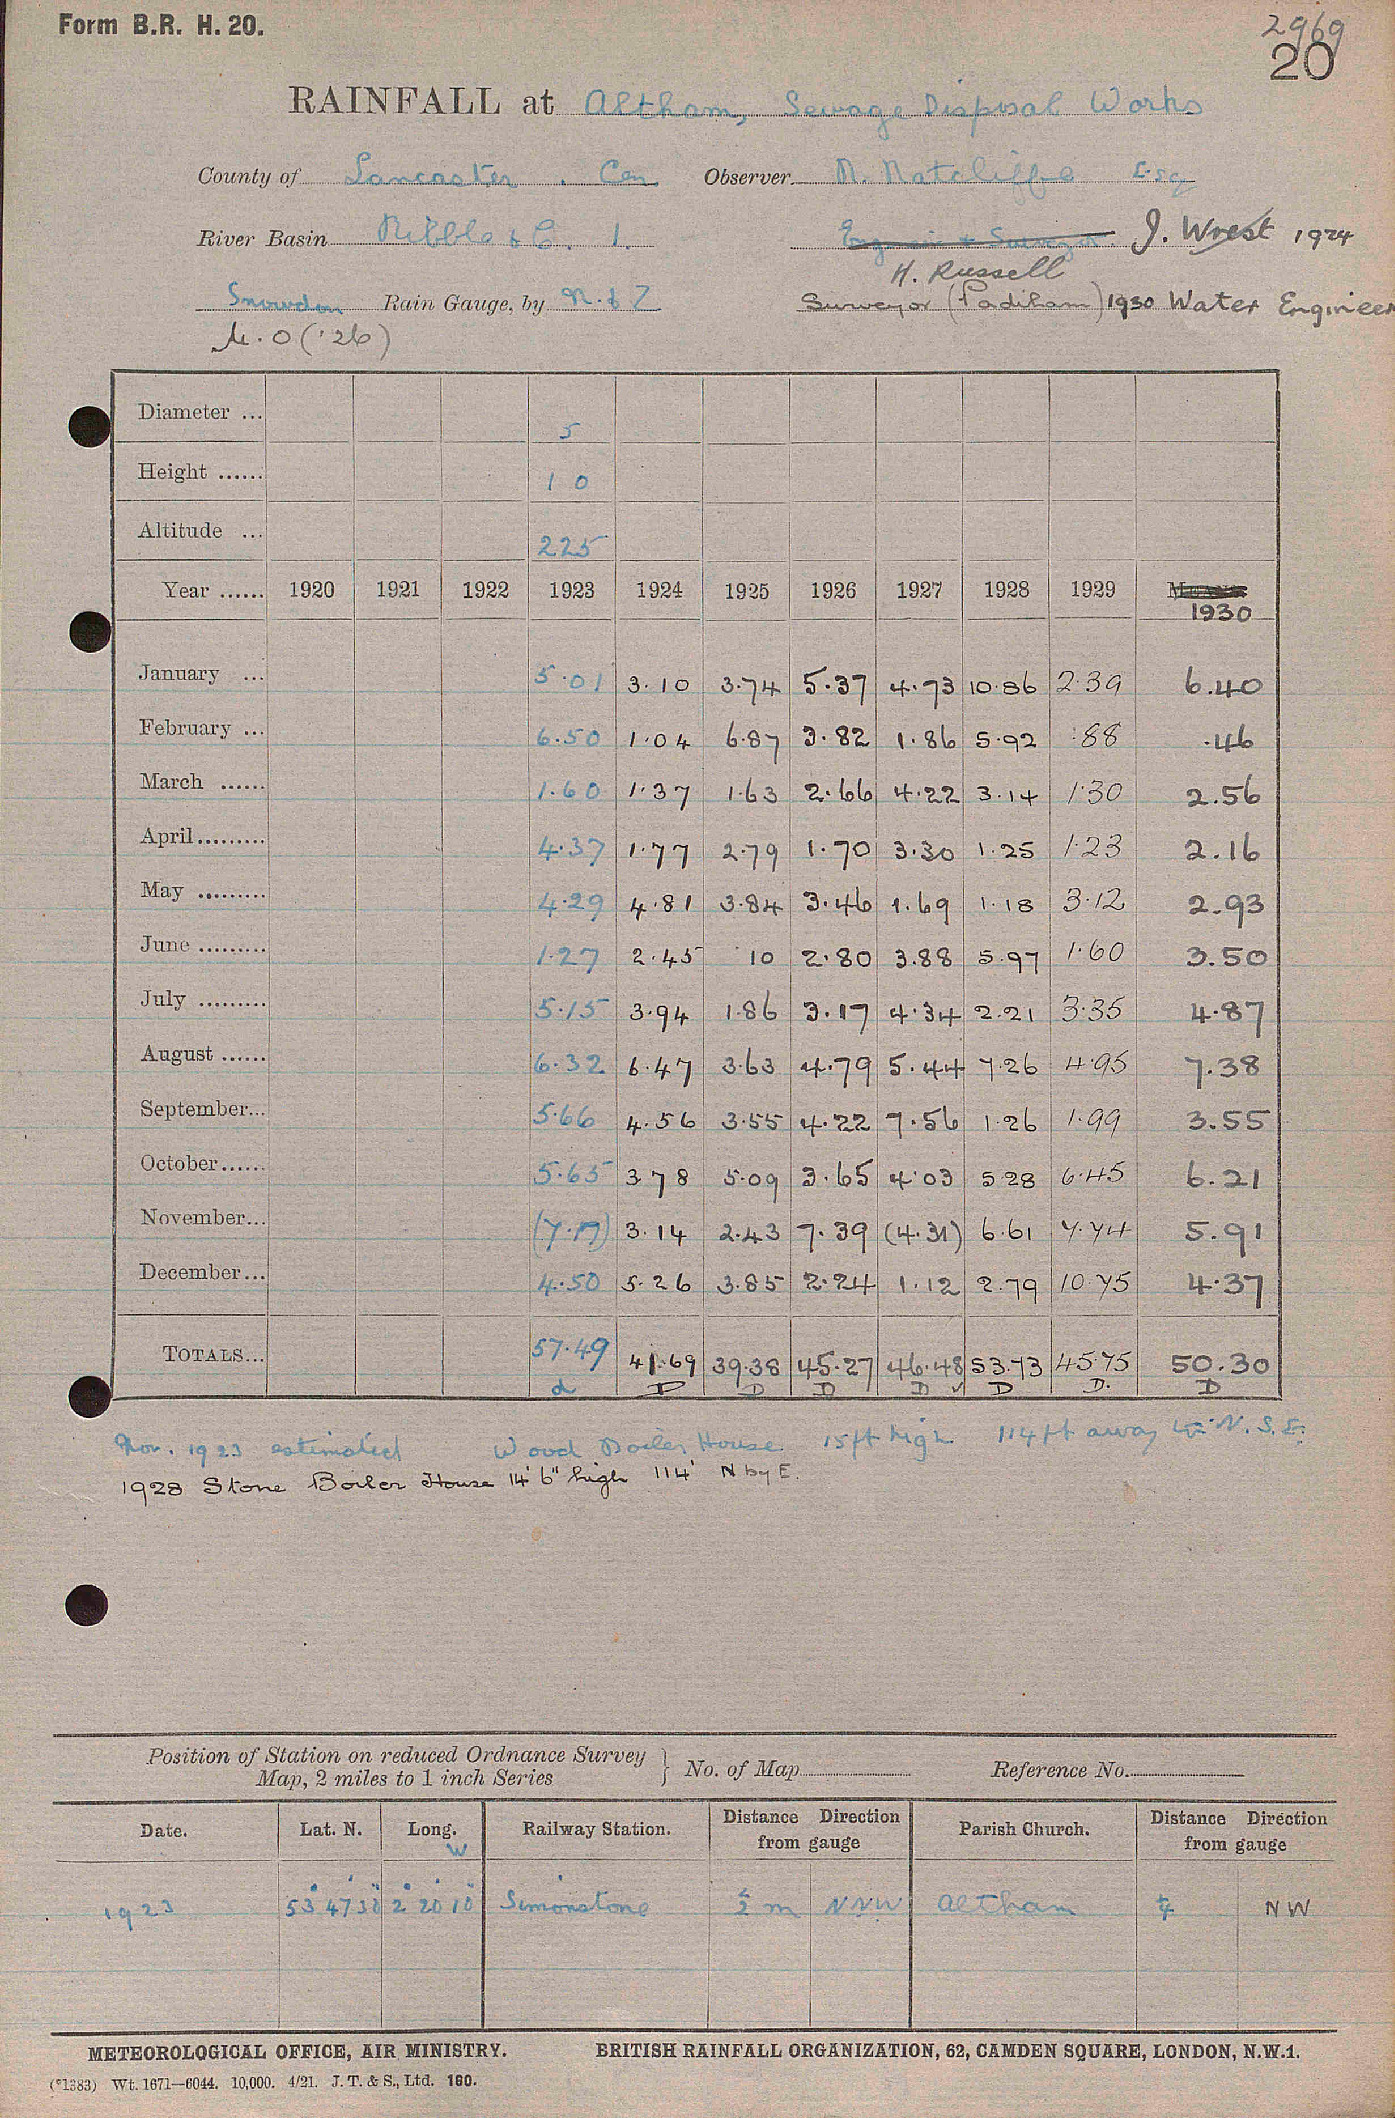 Form B.R. H. 20.
2969
20
RAINFALL at Altham, Sewage Disposal Works
County of Lancaster . Cen Observer R. Ratcliffe Esq
River Basin Ribble & C. 1. Engineer & Surveyor. J. Wrest 1924
H. Russell
Snowdon Rain Gauge, by N. & Z Surveyor (Padiham) 1930 Water Engineer
M.O ('26)
Diameter ... 5
Height ...... 1 0
Altitude ... 225
Year ...... 1920 1921 1922 1923 1924 1925 1926 1927 1928 1929 Means
1930
January ... 5.01 3.10 3.74 5.37 4.73 10.86 2.39 6.40
February ... 6.50 1.04 6.87 3.82 1.86 5.92 .88 .46
March ...... 1.60 1.37 1.63 2.66 4.22 3.14 1.30 2.56
April......... 4.37 1.77 2.79 1.70 3.30 1.25 1.23 2.16
May ......... 4.29 4.81 3.84 3.46 1.69 1.18 3.12 2.93
June ......... 1.27 2.45 .10 2.80 3.88 5.97 1.60 3.50
July ......... 5.15 3.94 1.86 3.17 4.34 2.21 3.35 4.87
August ...... 6.32 6.47 3.63 4.79 5.44 7.26 4.95 7.38
September... 5.66 4.56 3.55 4.22 7.56 1.26 1.99 3.55
October...... 5.65 3.78 5.09 3.65 4.03 5.28 6.45 6.21
November... (7.17) 3.14 2.43 7.39 (4.31) 6.61 7.74 5.91
December... 4.50 5.26 3.85 2.24 1.12 2.79 10.75 4.37
TOTALS... 57.49 41.69 39.38 45.27 46.48 53.73 45.75 50.30
d D D D D ✓ D D. D
Nov. 1923 estimated Wood Boiler House 15ft high 114ft away
1928 Stone Boiler House 14' 6" high 114' N by E.
Position of Station on reduced Ordnance Survey
Map, 2 miles to 1 inch Series } No. of Map Reference No.
Date. Lat. N. Long. W Railway Station. Distance Direction from gauge Parish Church. Distance Direction from gauge
1923 53° 47' 30" 2° 20' 10" Simonstone ½ m NNW Altham ¼ NW
METEOROLOGICAL OFFICE, AIR MINISTRY. BRITISH RAINFALL ORGANIZATION, 62, CAMDEN SQUARE, LONDON, N.W.1.
(*1383) Wt. 1671—6044. 10,000. 4/21. J. T. & S., Ltd. 160.